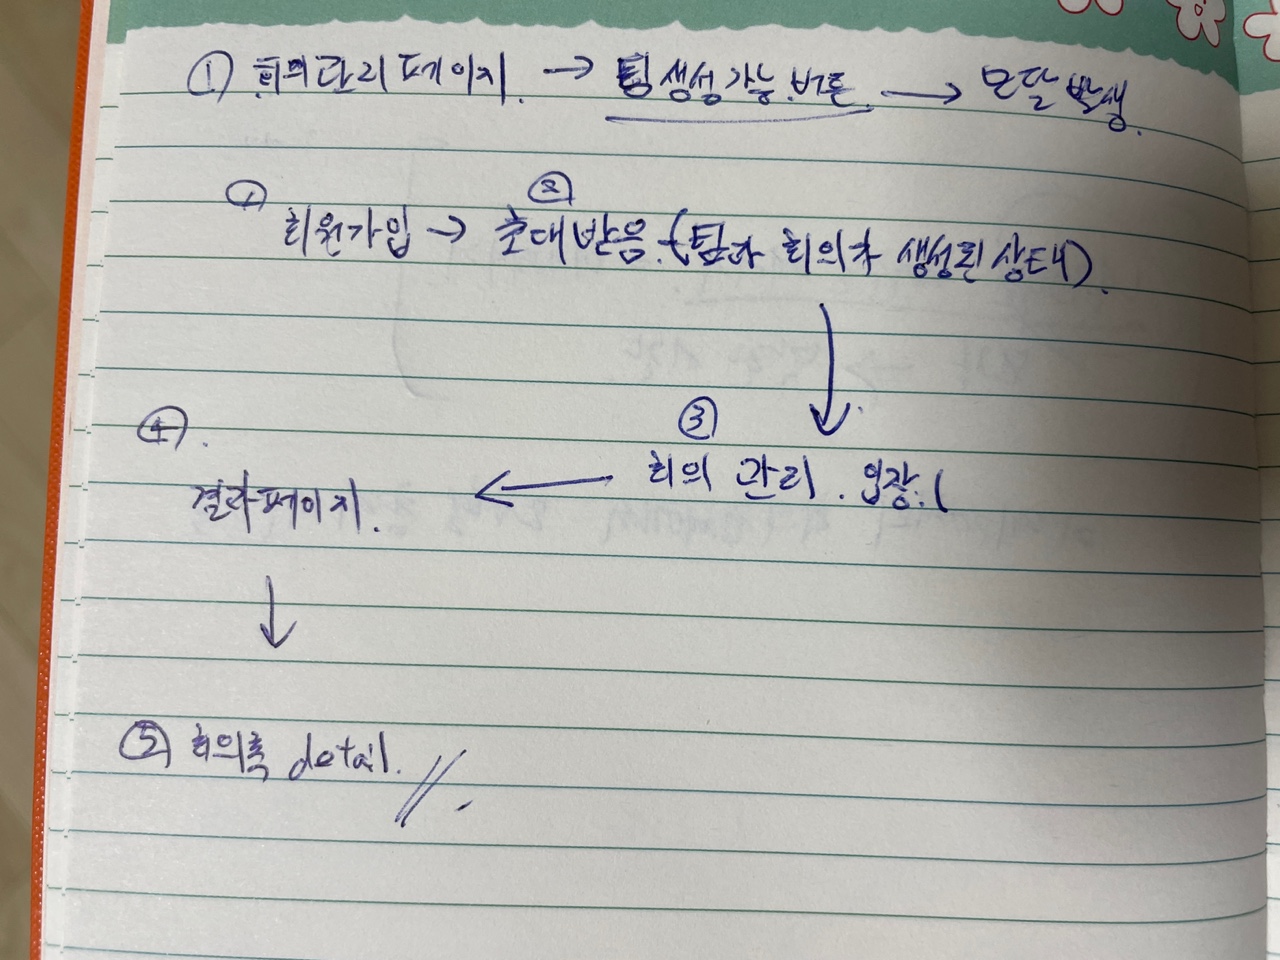 ① 회의관리 페이지. → 팀 생성 가능 버튼. → 모달 발생.
① 회원가입 → ② 초대받음. (팀과 회의가 생성된 상태).
③ 회의 관리. 입장. (
④. 결과 페이지.
⑤ 회의록 detail. //.